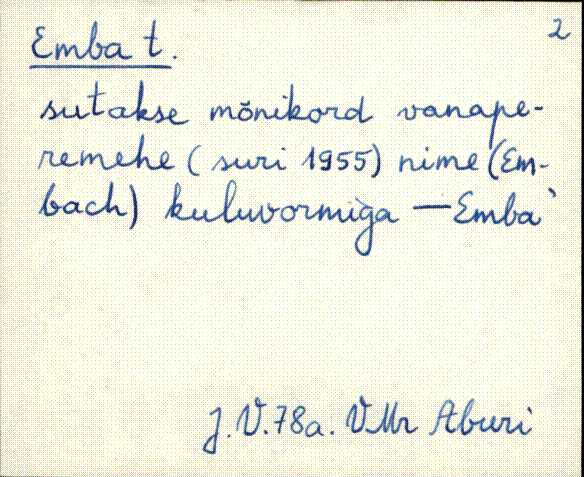 2
Emba t.
sutakse mõnikord vanape-
remehe (suri 1955) nime (Em-
bach) kuluvormiga — Emba`
J.V.78a. VMr Aburi